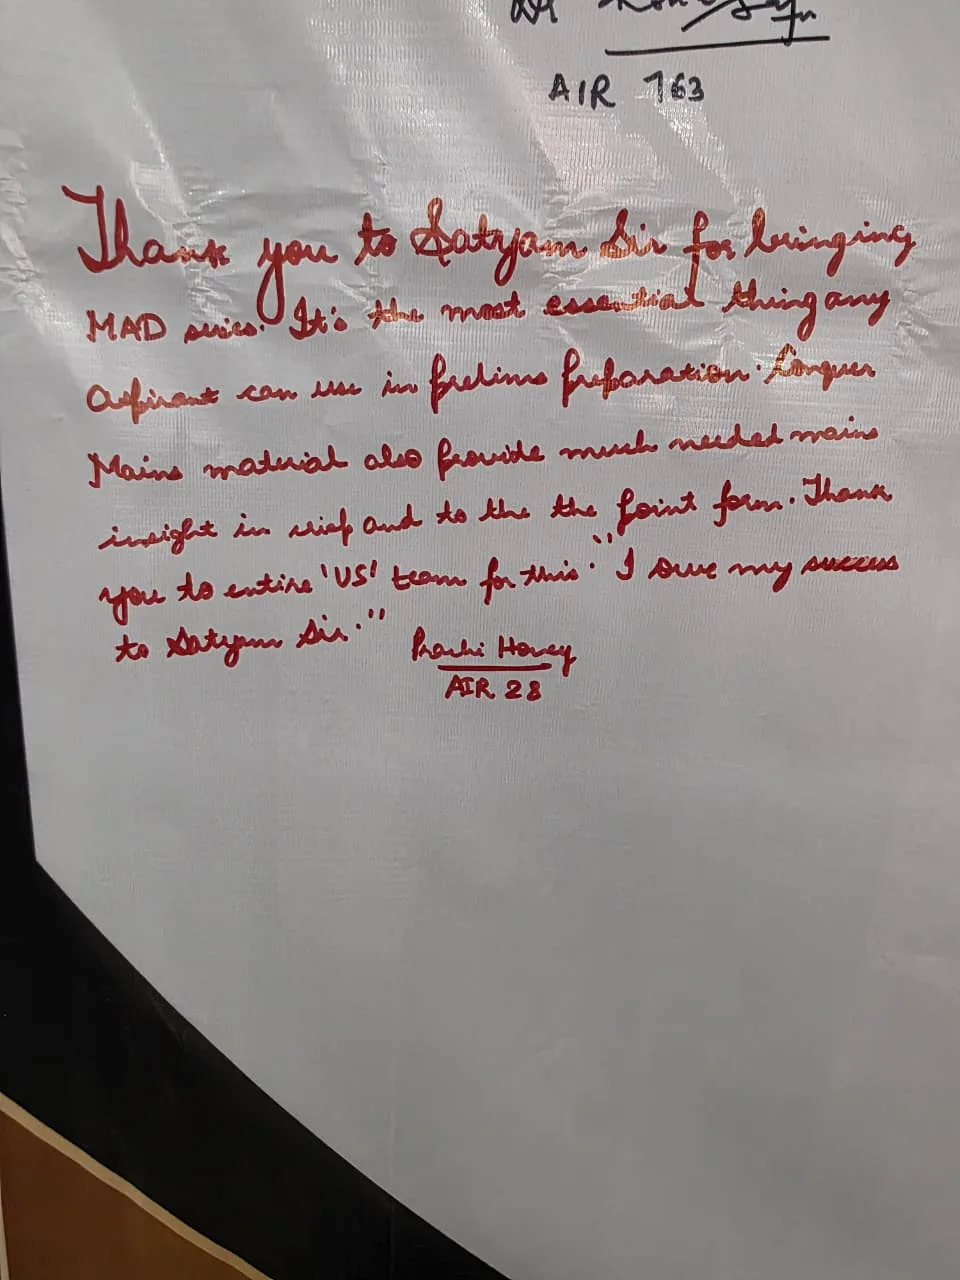 Dr
AIR 763
Thank you to Satyam Sir for bringing
MAD series. It's the most essential thing any
aspirant can use in prelims preparation. Conquer
Mains material also provide much needed mains
insight in crisp and to the the point form. Thank
you to entire 'US' team for this. "I owe my success
to Satyam Sir."
Prachi Honey
AIR 28